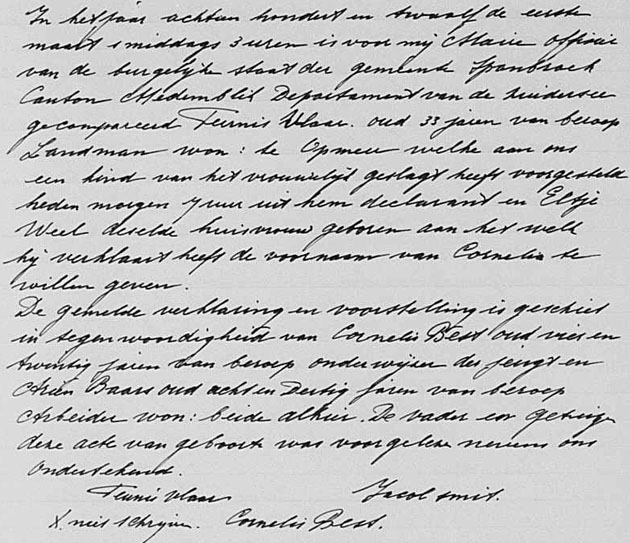 In het jaar achtien hondert en twaalf de eerste
maart smiddags 3 uren is voor mij Maire officier
van de burgelijke staat der gemeente Spanbroek
Canton Medemblik Departament van de Zuidersee
gecompareerd Teunis Vlaar. oud 33 jaren van beroep
Landman won: te Opmeer welke aan ons
een kind van het vrouwelijk geslagt heeft voorgesteld
heden morgen 7 uur uit hem declarant en Eltje
Weel deselde huisvrouw geboren aan het welk
hij verklaart heeft de voornaam van Cornelia te
willen geven.
De gemelde verklaring en voorstelling is geschied
in tegenwoordigheid van Cornelis Best oud vier en
twintig jaren van beroep onderwijser der jeugt en
Arien Baars oud acht en Dertig jaren van beroep
Arbeider won: beide alhier. De vader en Getuige
deze acte van geboorte was voorgeleze nevens ons
ondertekend.
Teunis Vlaar Jacob Smit.
X. niet schrijven. Cornelis Best.